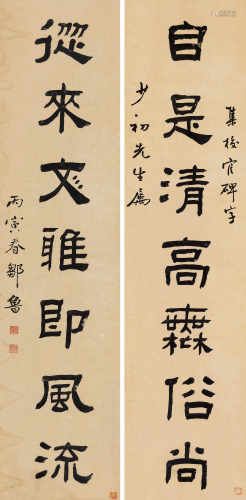 集校官碑字
自是清高無俗尚
少初先生屬
從來文雅即風流
丙寅春鄒魯